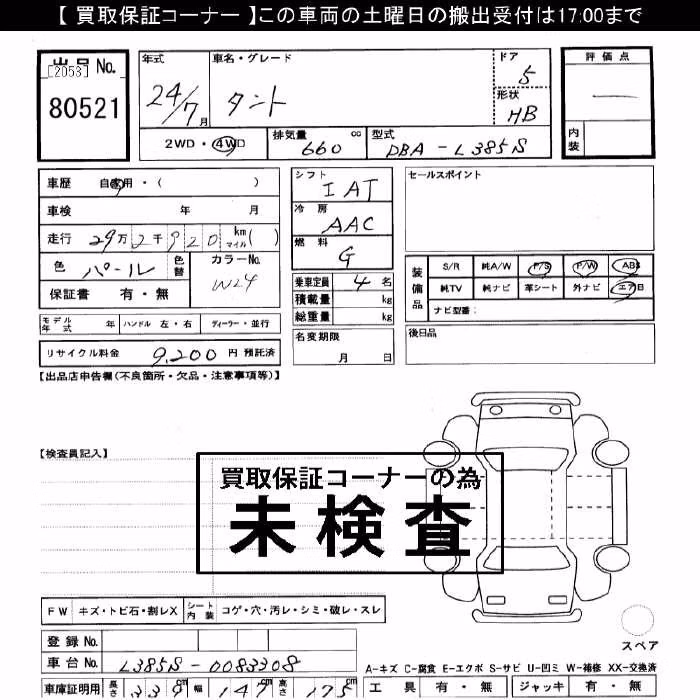 【 買取保証コーナー 】この車両の土曜日の搬出受付は17:00まで
出品 No. [2053]
80521
年式 24/7月
車名・グレード タント
ドア 5
形状 HB
2WD・4WD
排気量 660 cc
型式 DBA-L385S
評価点 —
内装
車歴 自家用・( )
車検 年 月
走行 29万2千920 km マイル( )
色 パール 色替
カラーNo. W24
保証書 有・無
シフト IAT
冷房 AAC
燃料 G
乗車定員 4名
積載量 kg
総重量 kg
セールスポイント
装備品 S/R 純A/W P/S P/W ABS
純TV 純ナビ 革シート 外ナビ エアB
ナビ型番：
モデル年式 年 ハンドル 左・右 ディーラー・並行
名変期限 月 日
後日品
リサイクル料金 9,200 円 預託済
【出品店申告欄(不良箇所・欠品・注意事項等)】
【検査員記入】
買取保証コーナーの為
未検査
FW キズ・トビ石・割レX シート内装 コゲ・穴・汚レ・シミ・破レ・スレ
スペア
登録 No.
車台 No. L385S-0083308
A-キズ C-腐食 E-エクボ S-サビ U-凹ミ W-補修 XX-交換済
車庫証明用 長さ 339 cm 幅 147 cm 高さ 175 cm
工具 有・無 ジャッキ 有・無